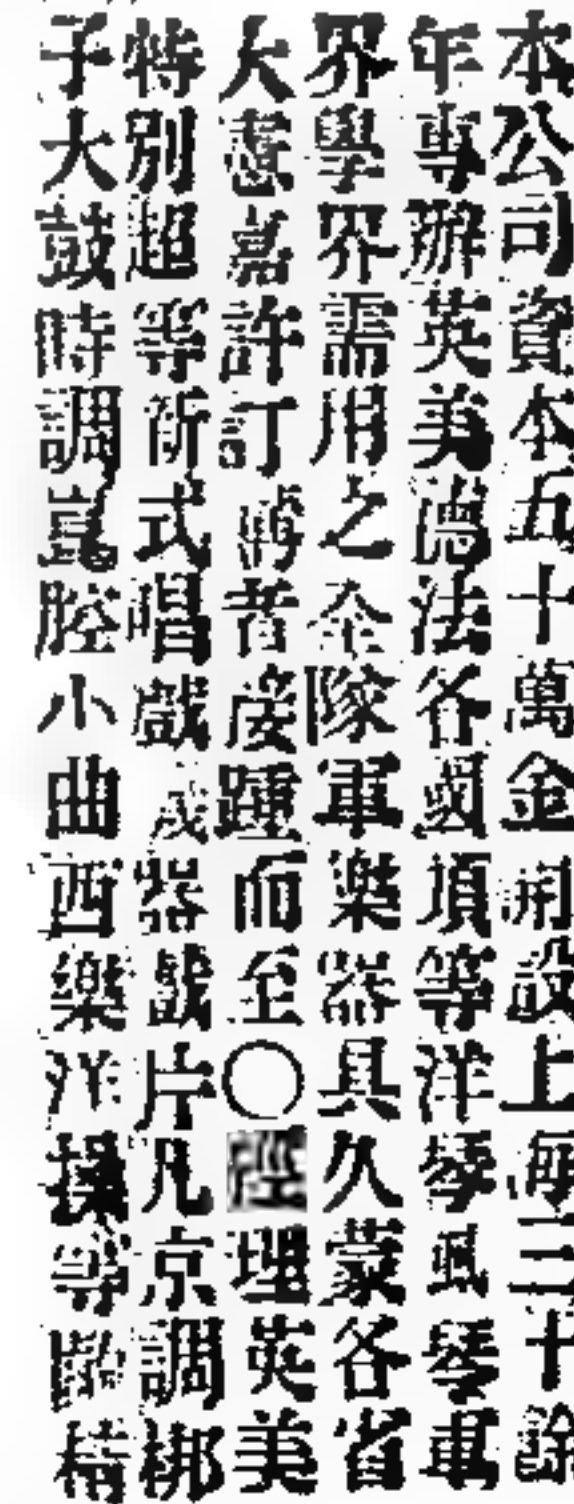 本公司資本五十萬金開設上海三十餘
年專辦英美德法各國項等洋琴風琴軍
界學界需用之全隊軍樂器具久蒙各省
大憲嘉許訂購者接踵而至○經理英美
特別超等新式唱戲機器戲片凡京調梆
子大鼓時調崑腔小曲西樂洋操等齣精